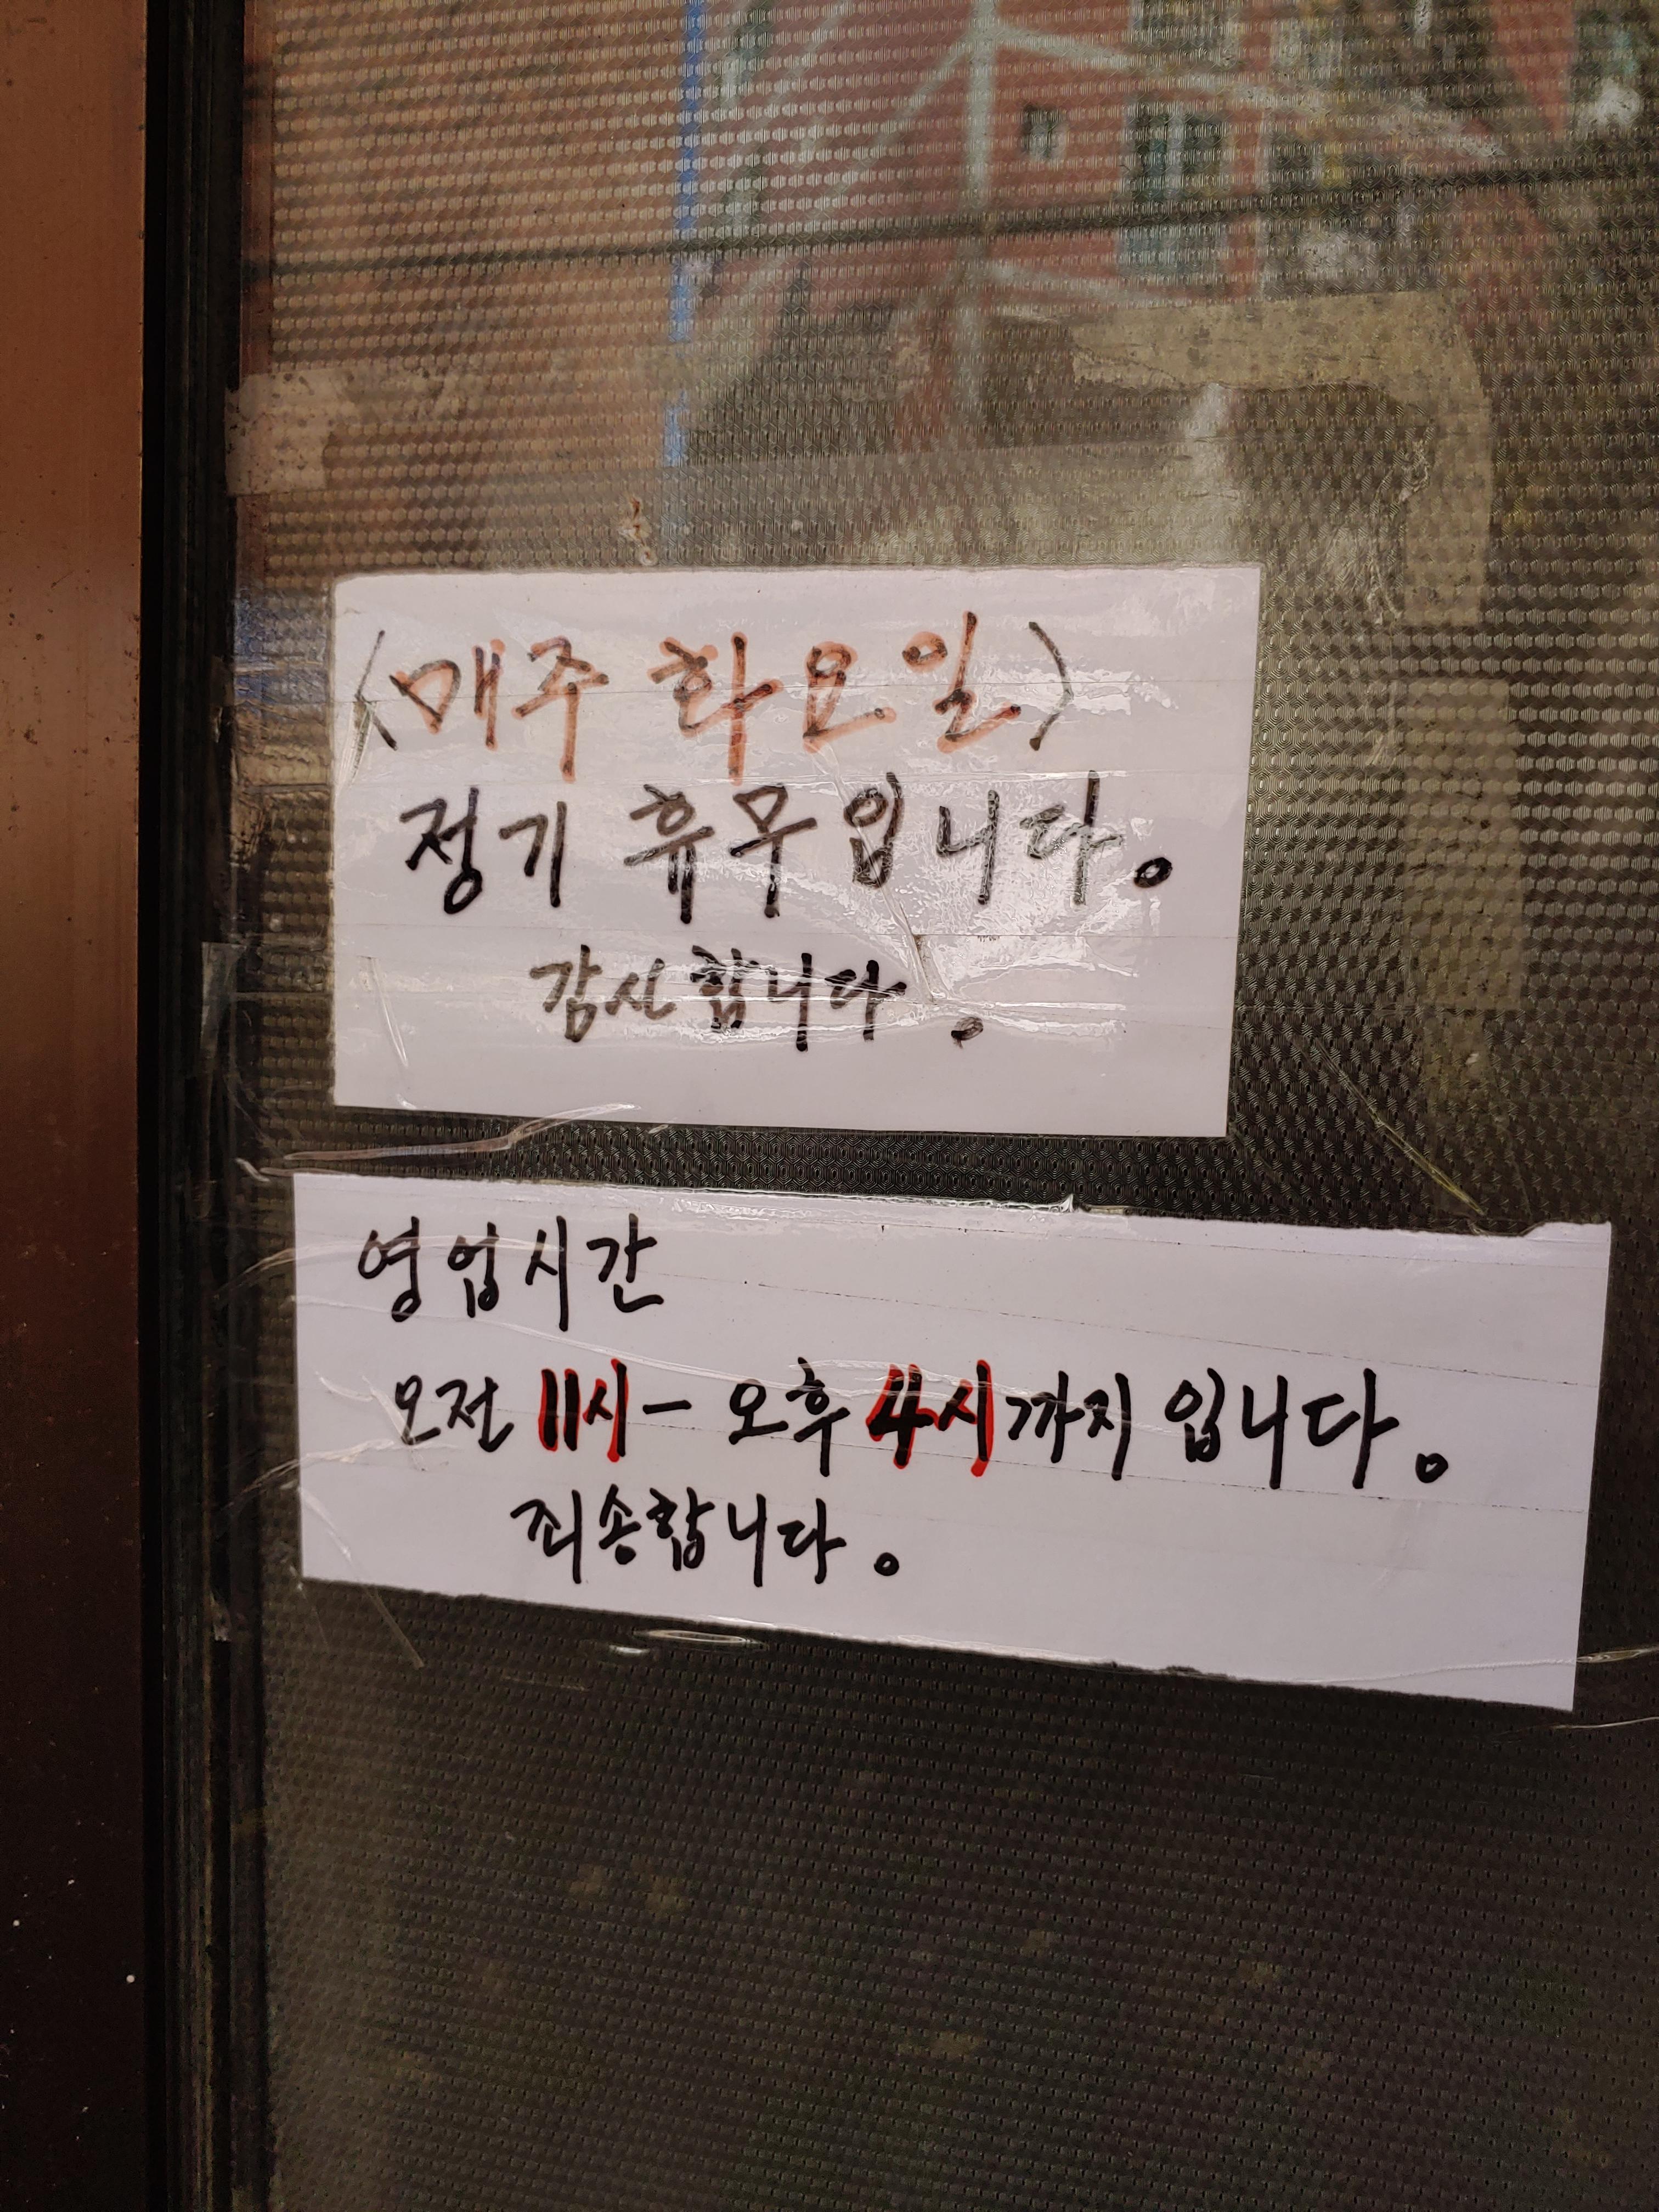 (매주 화요일)
정기 휴무입니다.
감사합니다.
영업시간
오전 11시 - 오후 4시까지 입니다.
죄송합니다.